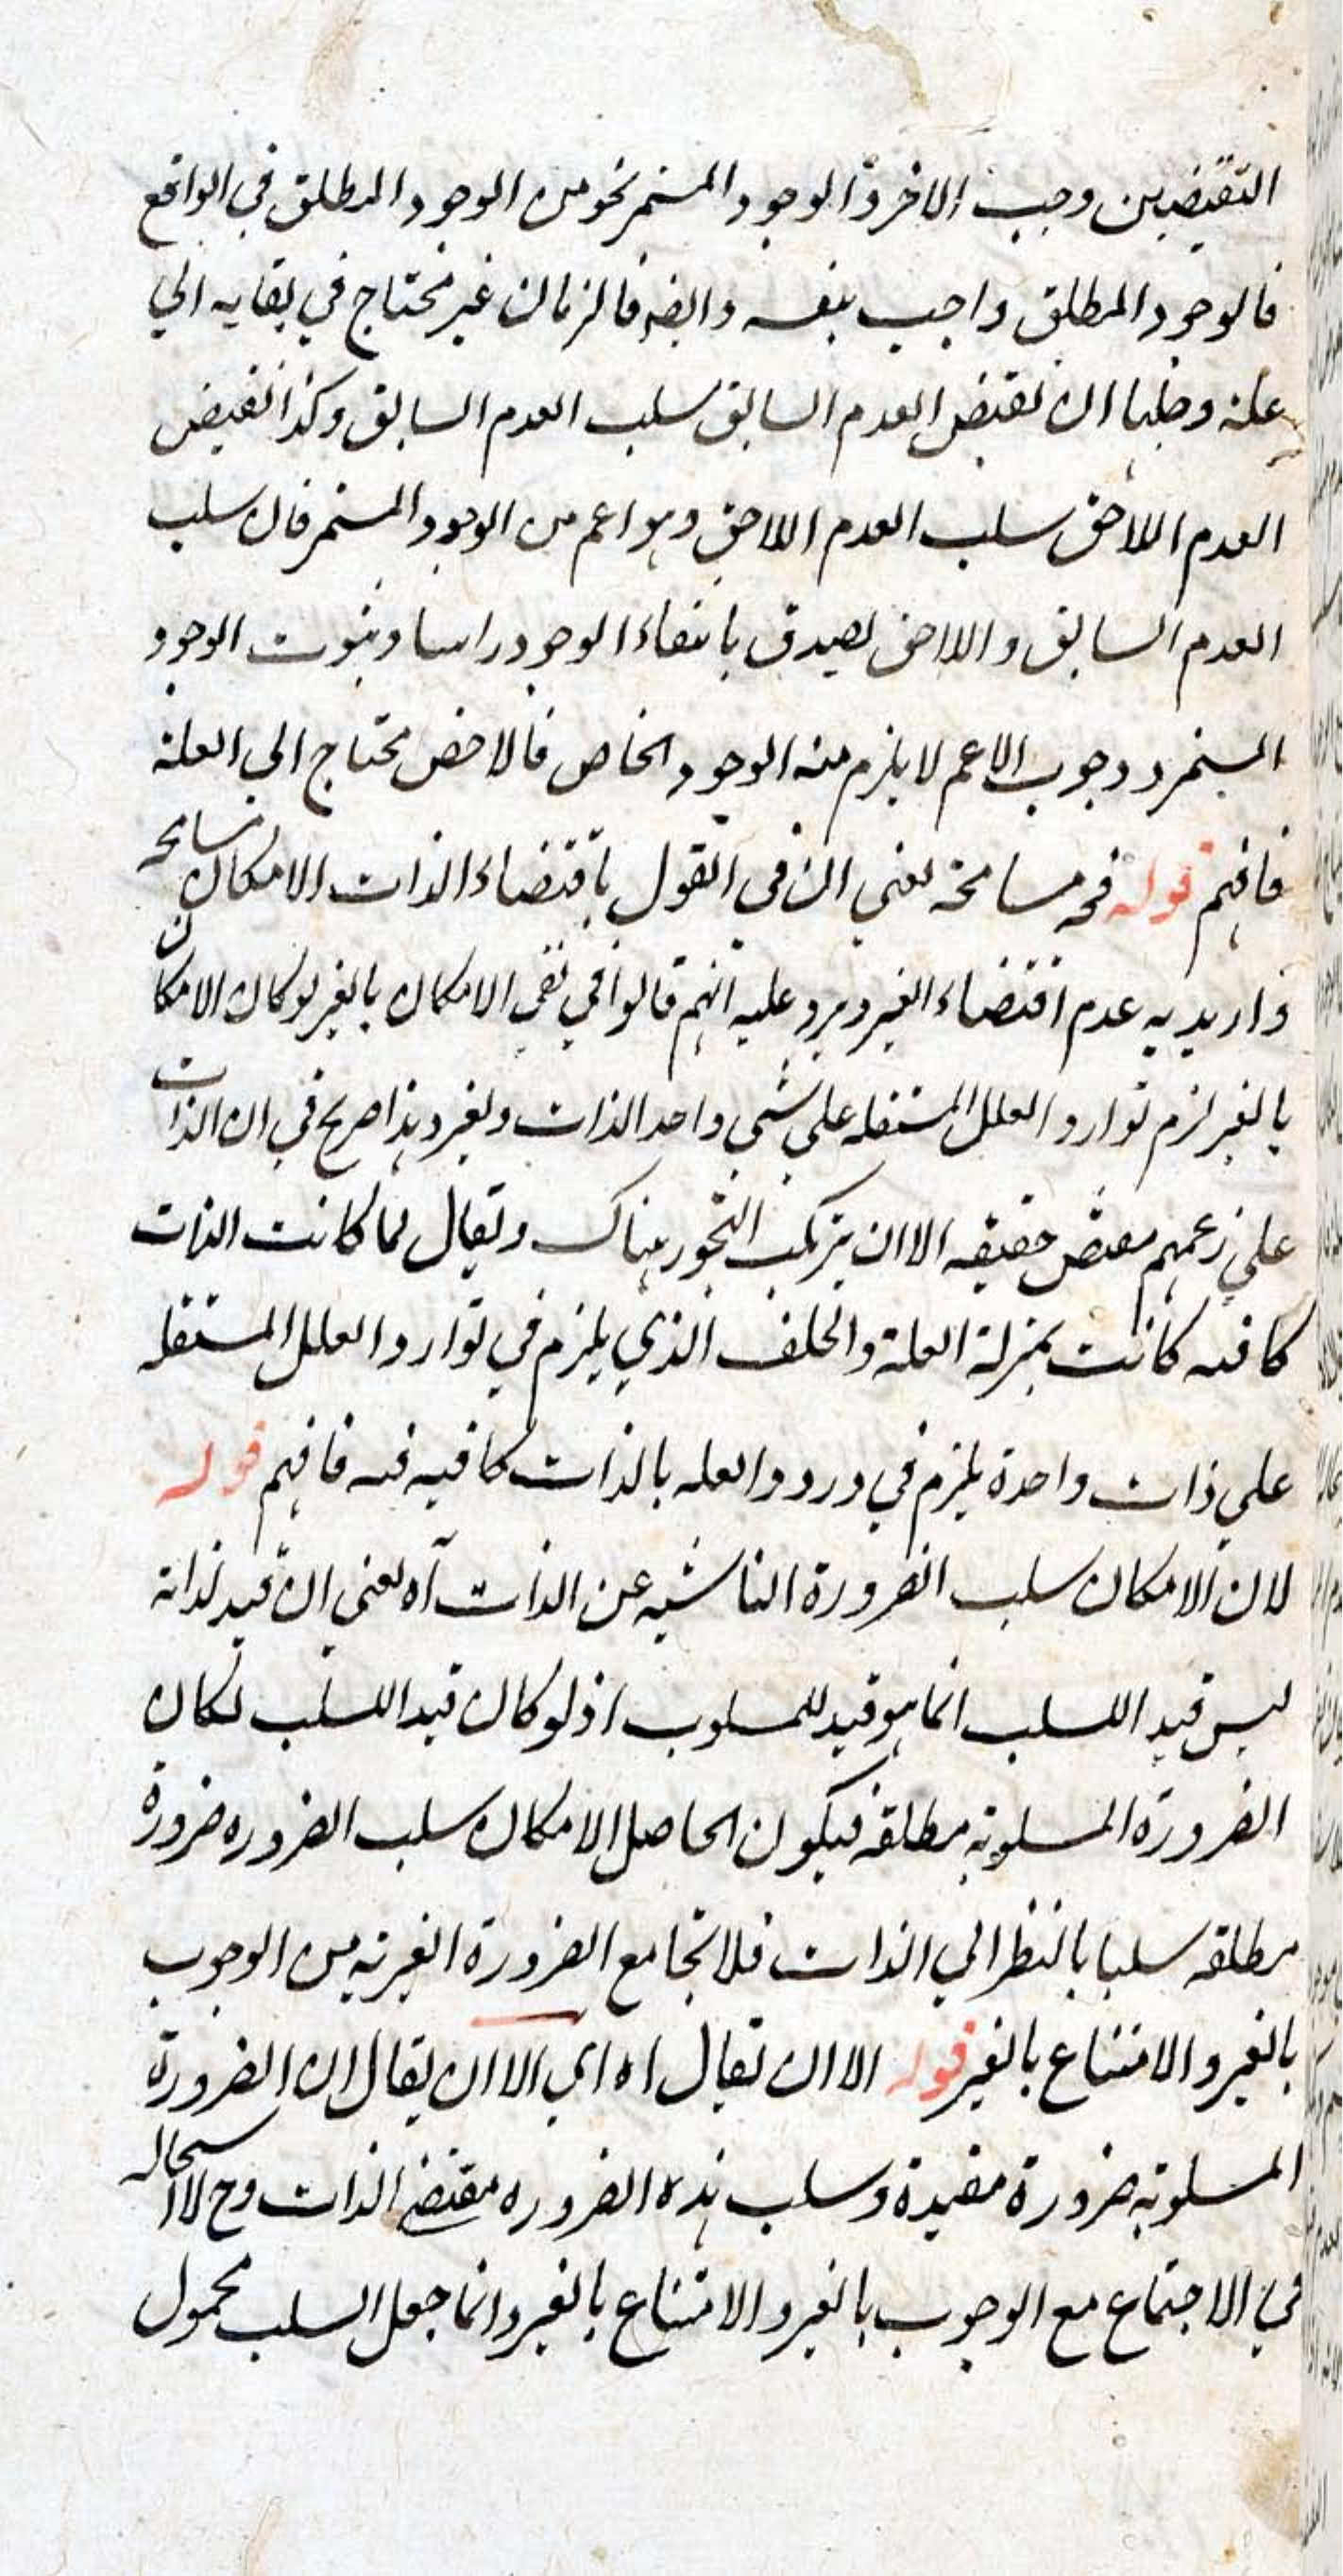 النقيضين وجب الاخر و الوجود المستمر نحو من الوجود المطلق في الواقع
فالوجود المطلق واجب بنفسه وايضه فالزمان غير محتاج في بقايه الي
علة وجلها ان نقيض العدم السابق سلب العدم السابق وكذا نقيض
العدم اللاحق سلب العدم اللاحق وهو اعم من الوجود المستمر فان سلب
العدم السابق و اللاحق يصدق بانتفاء الوجود راسا وبثبوت الوجود
المستمر و وجوب الاعم لا يلزم منه الوجود الخاص فالاخص محتاج الى العلة
فافهم قوله فيه مسامحة يعني ان في القول باقتضاء الذات الامكان تسامحه
واريد به عدم اقتضاء الغير ويرد عليه انهم قالوا في نفي الامكان بالغير لو كان الامكان
بالغير لزم توارد العلل المستقله علي شي واحد الذات وغير وهذا صريح في ان الذات
علي زعمهم مقتض حقيقه الا ان يرتكب التجوز هناك ويقال لما كانت الذات
كافيه كانت بمنزلة العلة والخلف الذي يلزم في توارد العلل المستقله
علي ذات واحدة يلزم في ورود العله بالذات كافيه فيه فافهم قوله
لان الامكان سلب الضرورة الناشيه عن الذات آه يعني ان قيد لذاته
ليس قيد اللسلب انما هو قيد للمسلوب اذ لو كان قيد اللسلب لكان
الضرورة المسلوبة مطلقة فيكون الحاصل الامكان سلب الضروره ضرورة
مطلقه سلبا بالنظر الي الذات فلا تجامع الضرورة الغيرية من الوجوب
بالغير والامتناع بالغير قوله الا ان يقال اه اي الا ان يقال ان الضرورة
المسلوبة ضرورة مقيدة وسلب هذه الضروره مقتضي الذات وح لا استحاله
في الاجتماع مع الوجوب بالغير و الامتناع بالغير وانما جعل السلب محمول